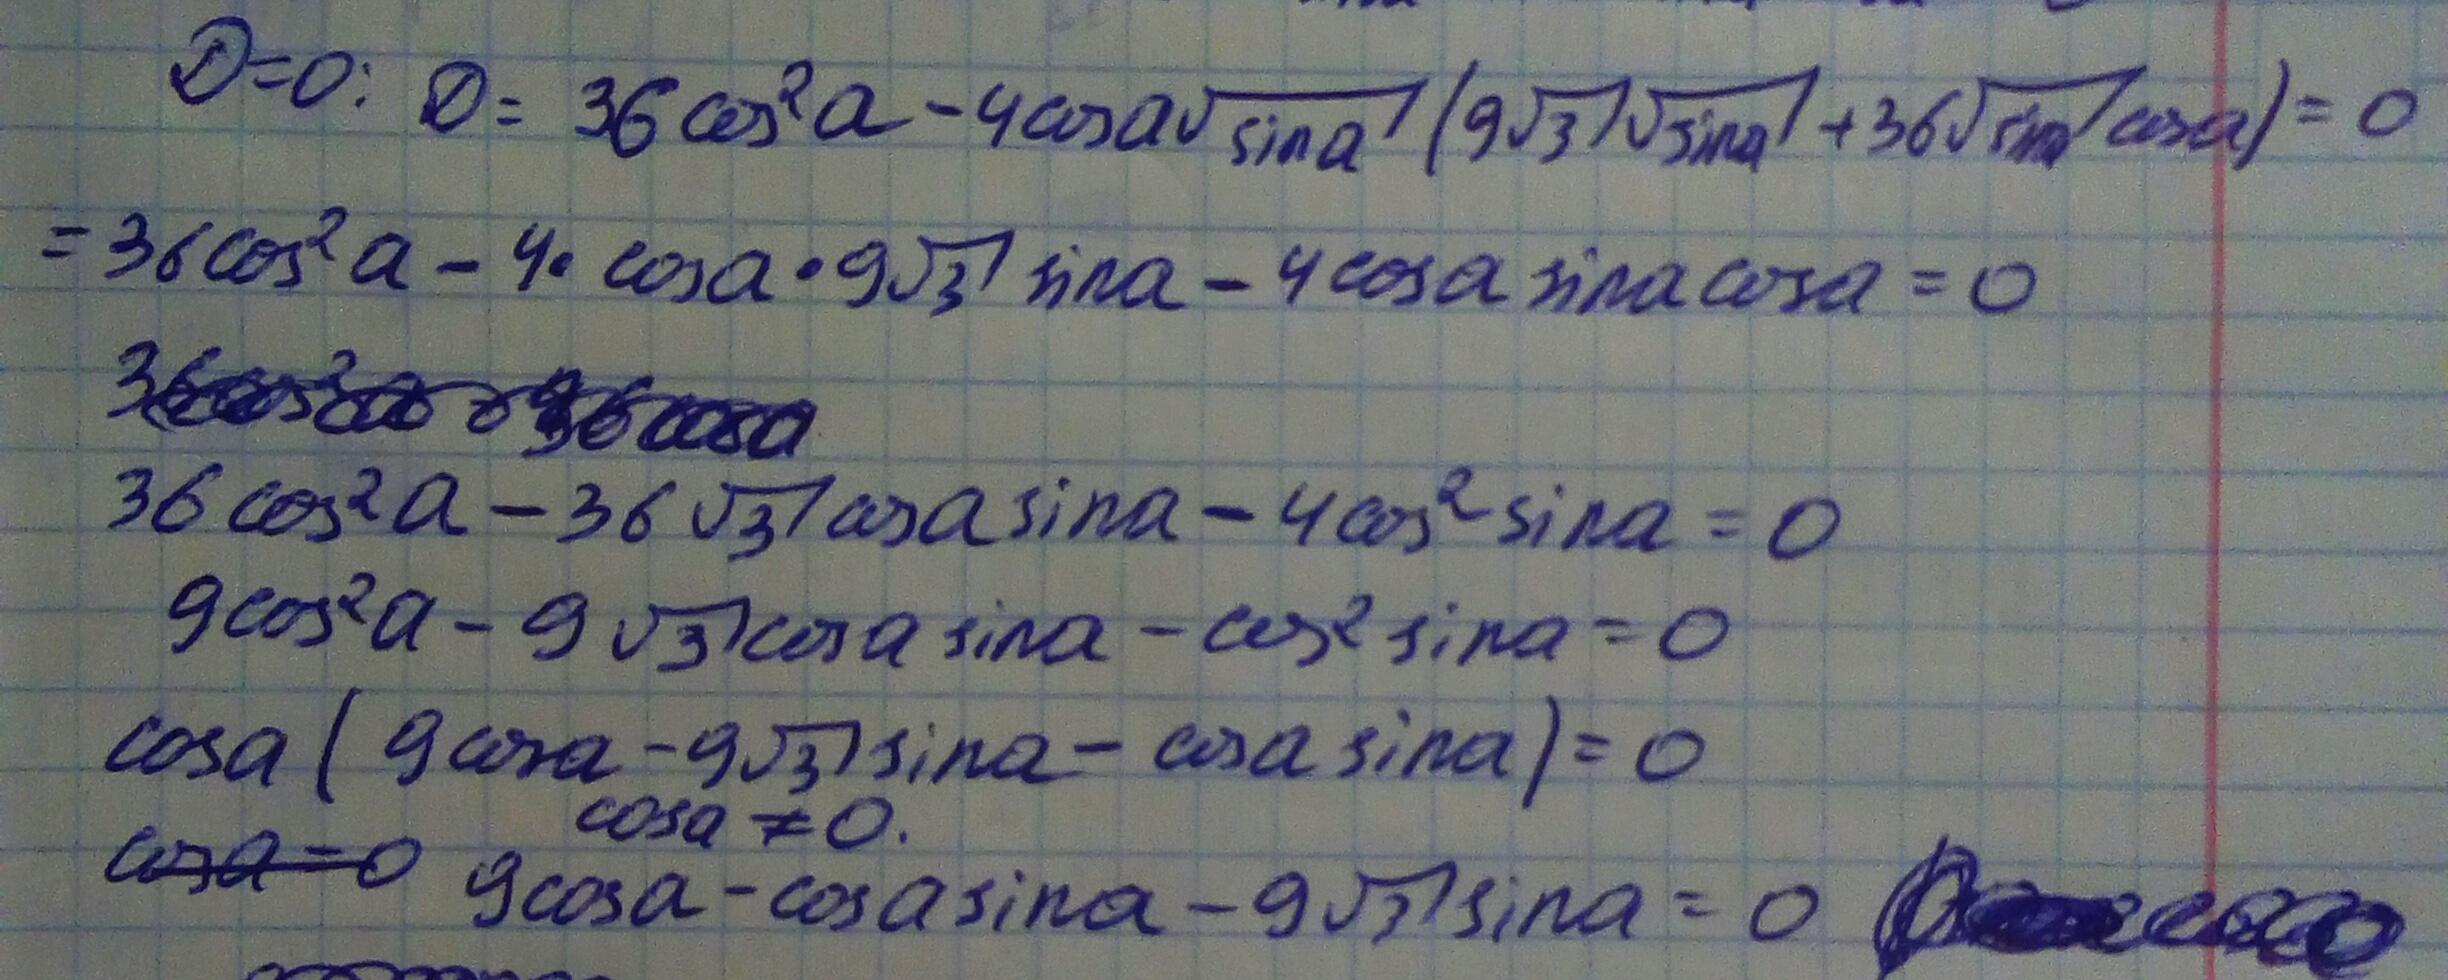 D=0: D= 36cos²a - 4cosa√sina (9√3 √sina + 36√sina cosa) = 0
= 36cos²a - 4· cosa · 9√3 sina - 4cosa sina cosa = 0
36cos²a - 36√3 cosa sina - 4cos² sina = 0
9cos²a - 9√3 cosa sina - cos² sina = 0
cosa ( 9cosa - 9√3 sina - cosa sina) = 0
cosa ≠ 0.
cosa=0 9cosa - cosa sina - 9√3 sina = 0